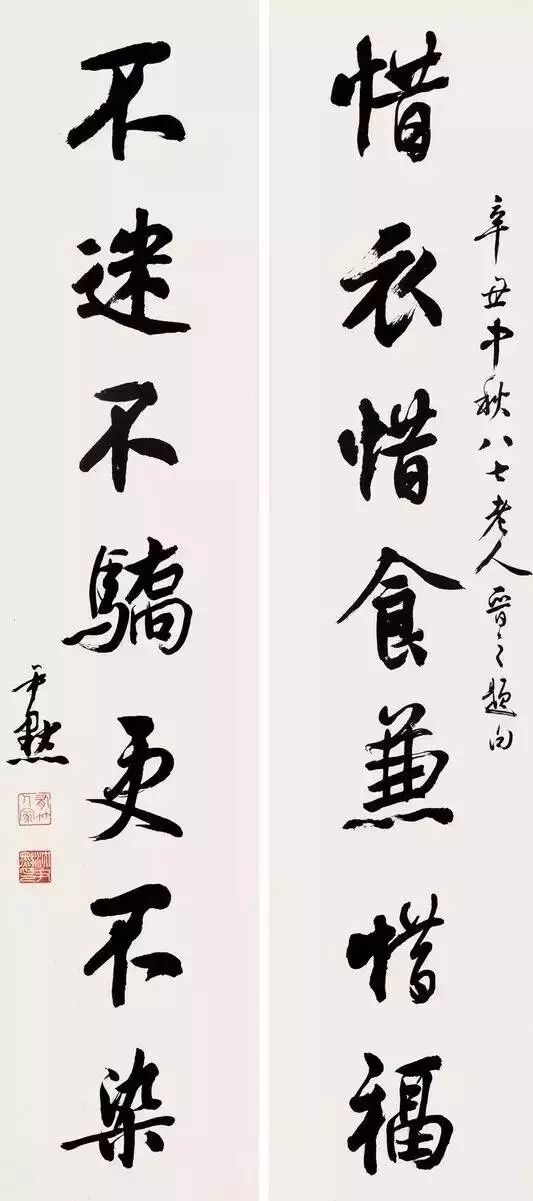 辛丑中秋八七老人晉之題句
惜衣惜食兼惜福
不迷不驕更不染
尹默